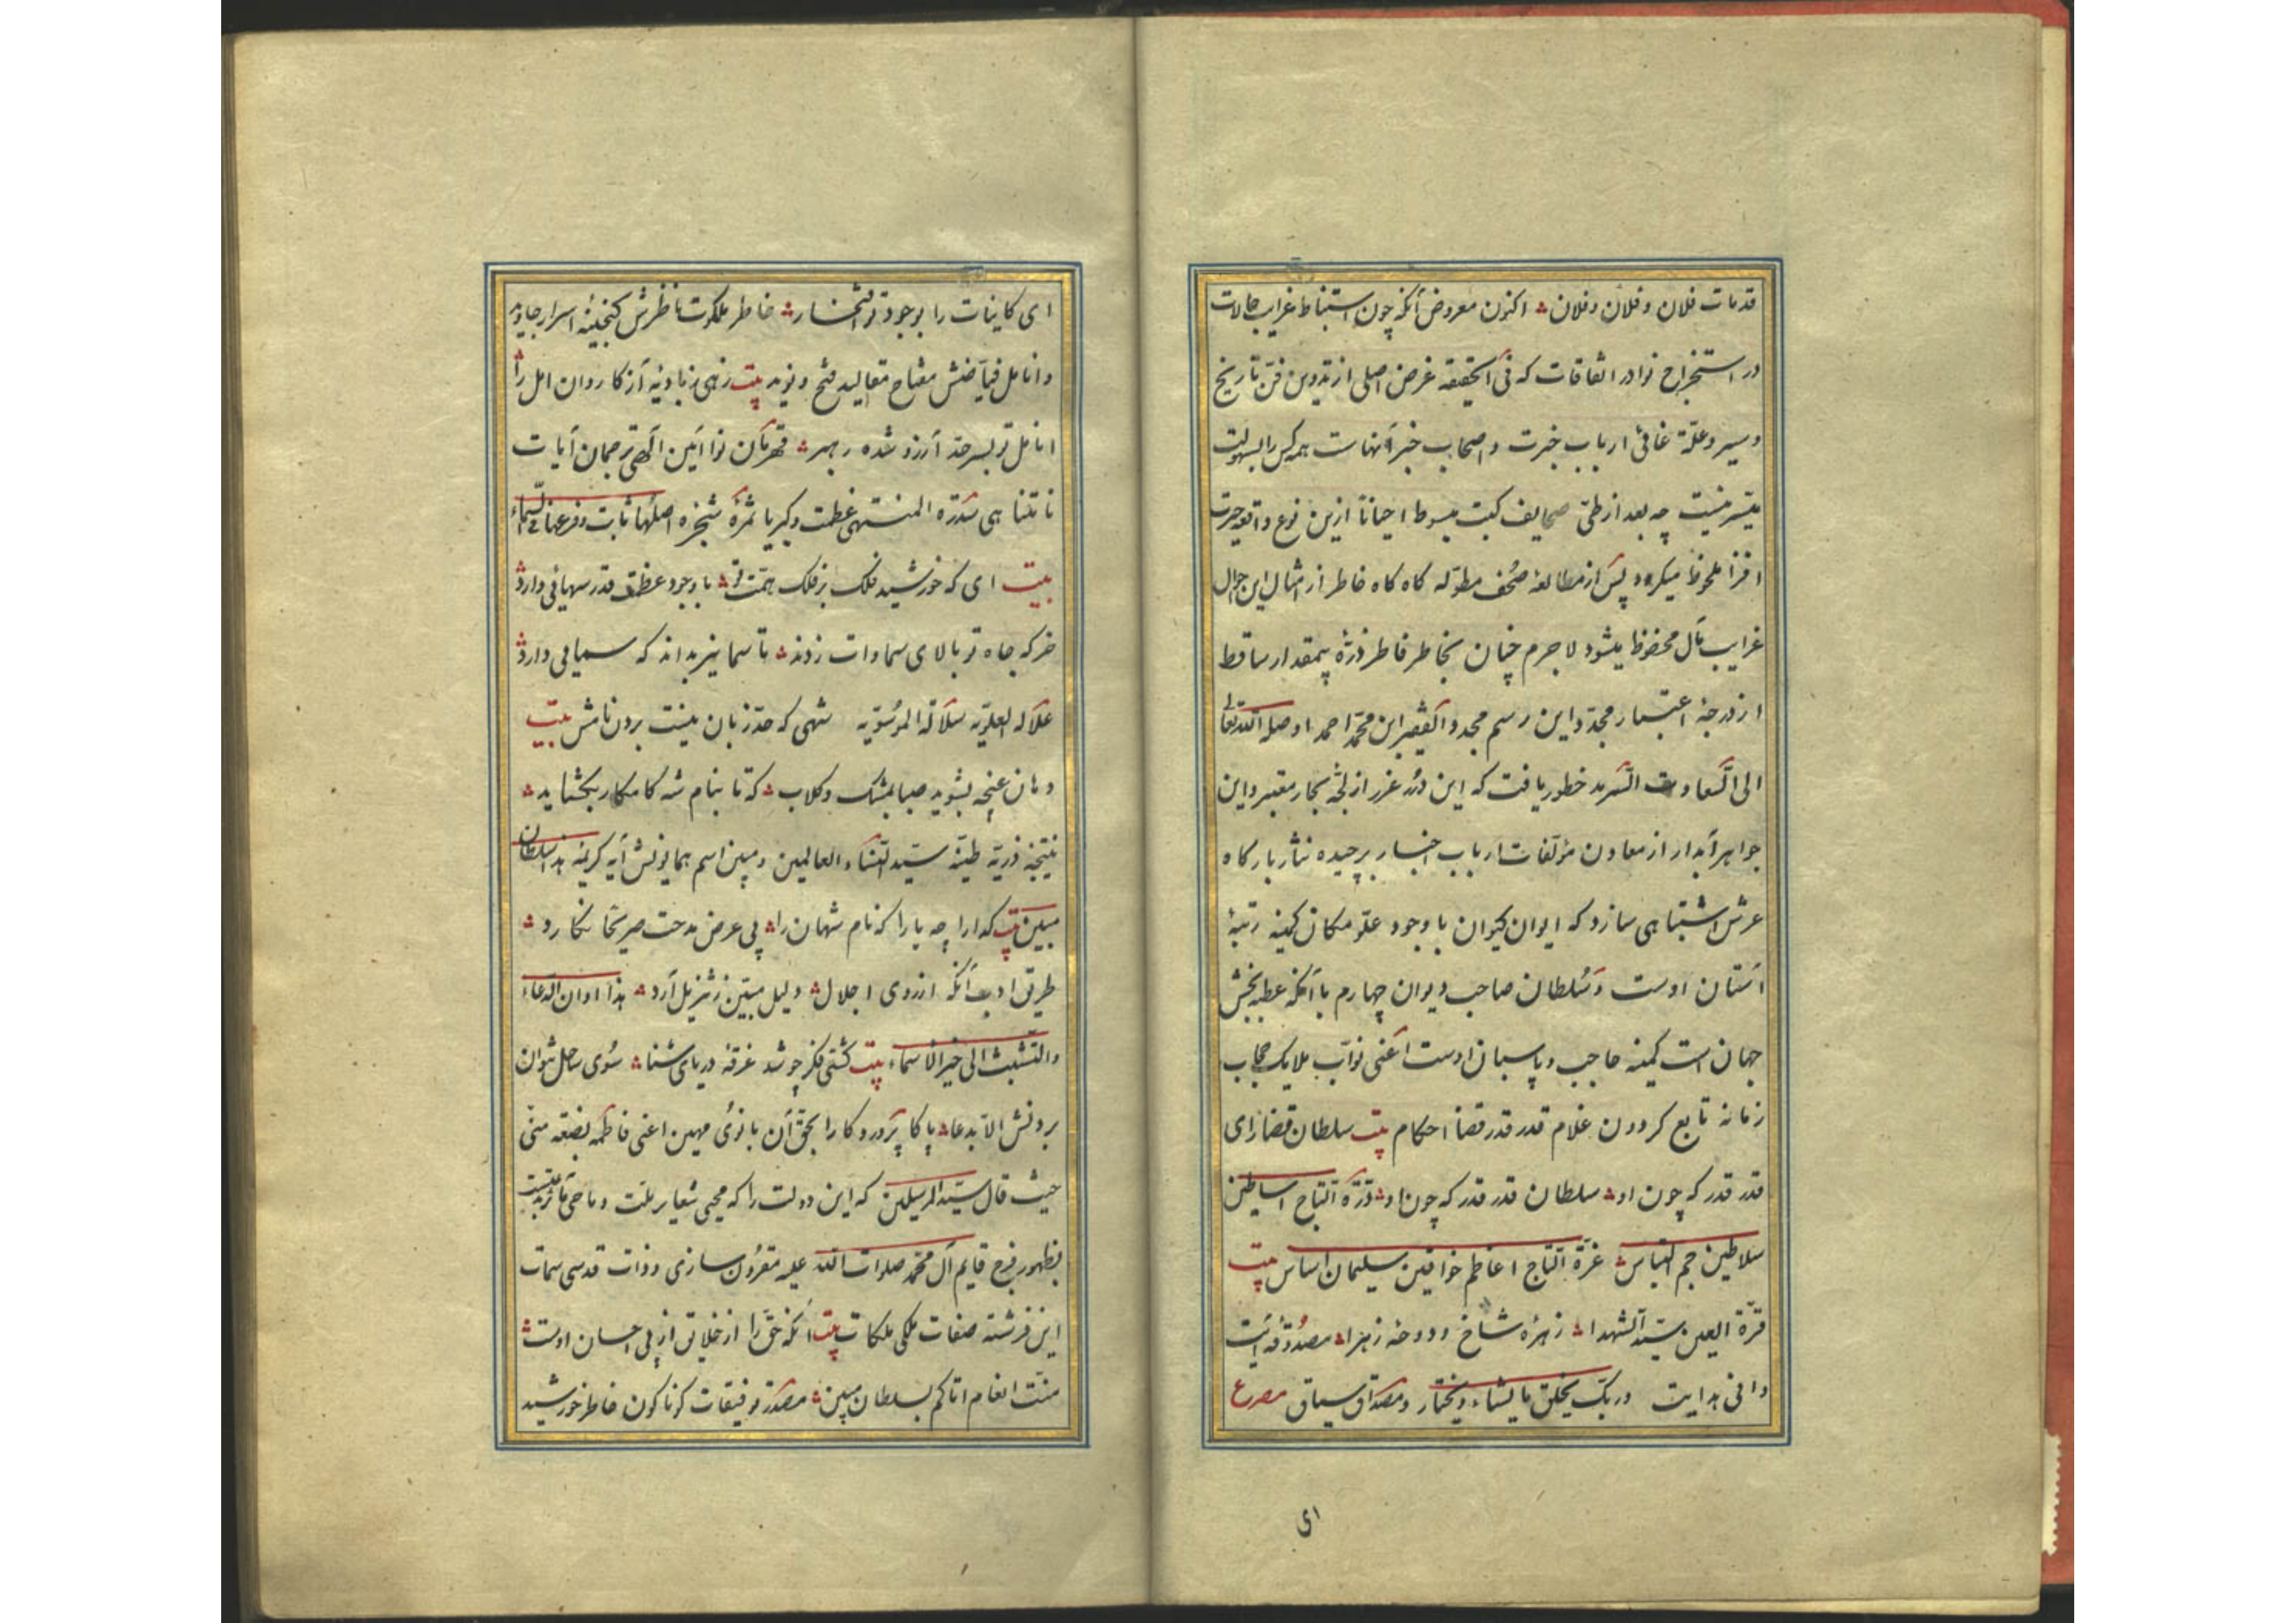 قدمات فلان و فلان و فلان اکنون معروض آنکه چون استنباط غرایب حالات
در استخراج نوادر اتفاقات که فی الحقیقه غرض اصلی از تدوین فن تاریخ
و سیر و علّة غائی ارباب خبرت و اصحاب خبر آنهاست همه کس را بسهولت
میسّر نیست چه بعد از طیّ صحایف کتب مبسوط احیاناً ازین نوع واقعه حیرت
افزا ملحوظ میکردد و پس از مطالعهٔ صُحف مطوّله کاه کاه خاطر از امثال این احوال
غرایب مآل محفوظ میشود لاجرم چنان بخاطر فاطر ذرّهٔ بیمقدار ساقط
از درجهٔ اعتبار مجدّد این رسم مجدد الفقیر ابن محمّد احمد اوصله الله تعالی
الی السعادت السّرمد خطور یافت که این دُرر غرر از لجّه بحار معتبر و این
جواهر آبدار از معادن مؤلفات ارباب اخبار برچیده نثار بارکاه
عرش اشتباهی سازد که ایوان کیوان با وجود علوّ مکان کمینه رتبهٔ
آستان اوست و سُلطان صاحب دیوان چهارم با آنکه عطیه بخش
جهان است کمینه حاجب و پاسبان اوست اعنی نوّاب ملایک حجاب
زمانه تابع کردون غلام قدر قدر قضا احکام بیت سلطان قضا رای
قدر قدر که چون او سلطان قدر قدر که چون او درّة التاج اساطین
سلاطین جم اقتباس غرّة التاج اعاظم خواقین سلیمان اساس بیت
قرّة العین سیّد الشهدا زهرهٔ شاخ دوحهٔ زهرا
وافی هدایت و ربّک یخلق ما یشاء و یختار و مصداق سیاق مصرع
ای
ای کاینات را بوجود تو افتخار خاطر ملکوت ناظرش کنجینه اسرار جاوید
و انامل فیّاضش مفتاح مقالید فتح و نوید بیت زهی
انامل تو بسرحدّ آرزو شده رهبر قهرمان نوا آئین الهی ترجمان آیات
نا متناهی سدرة المنتهی عظمت و کبریا ثمرهٔ شجرهٔ اصلها ثابت و فرعها فی السّماء
بیت ای که خورشید فلک بر فلک همّت تو با وجود عظمت قدر سهائی دارد
خرکه جاه تو بالای سماوات زدند تا سما نیز بداند که سمائی دارد
علاله العلویّه سلالة الموسویّه شهی که حدّ زبان نیست بردن نامش بیت
دهان غنچه بشوید صبا بمشک و کلاب که تا بنام شه کامکار بکشاید
نتیجه ذریّه طیّبه سیّدة النساء العالمین و مبین اسم همایونش آیه کریمه بسلطان
مبین بیت کدا را چه یارا که نام شهان را پی عرض مدحت صریحا نکارد
طریق ادب آنکه از روی اجلال دلیل مبیّن ز تنزیل آرد هذا اوان الدعاء
والتشبث الی خیر الاسماء بیت کشتی فکر چو شد غرقه دریای ثنا سُوی ساحل نتوان
بردنش الا بدعا پاکا پرورد کارا بحق آن بانوی مهین اعنی فاطمه بضعة منّی
حیث قال سیّد المرسلین که این دولت را که محیی شعایر ملّت و ماحی
بظهور فرج قایم آل محمّد صلوات الله علیه مقرون سازی و ذات قدسی سمات
این فرشته صفات ملکی ملکات بیت آنکه حق را از خلایق از پی احسان اوست
منّت انعام اتاکم بسلطان مبین مصدر توفیقات کوناکون خاطر خورشید